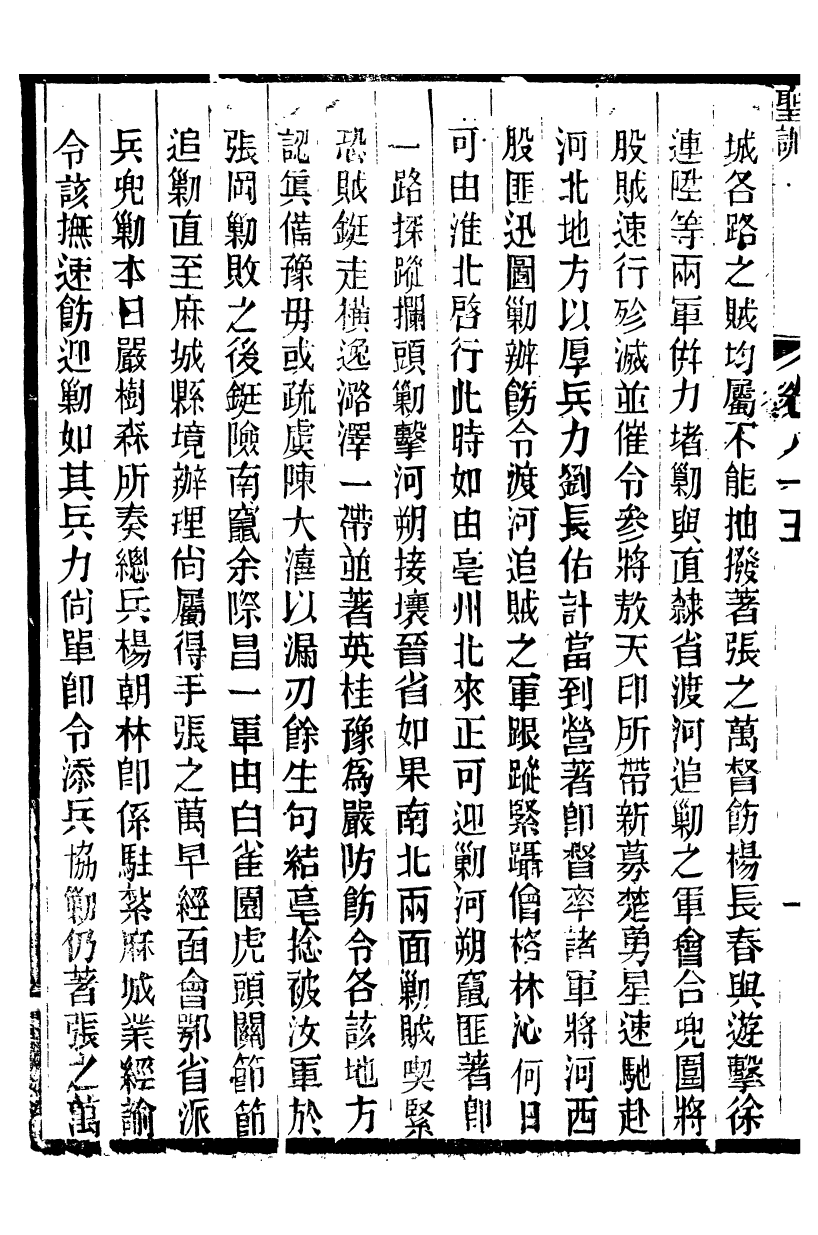 聖訓
卷八十五
一
城各路之賊均屬不能抽撥著張之萬督飭楊長春與遊擊徐
連陞等兩軍併力堵勦與直隸省渡河追勦之軍會合兜圍將
股賊速行殄滅並催令參將敖天印所帶新募楚勇星速馳赴
河北地方以厚兵力劉長佑計當到營著卽督率諸軍將河西
股匪迅圖勦辦飭令渡河追賊之軍跟蹤緊躡僧格林沁何日
可由淮北啓行此時如由亳州北來正可迎勦河朔竄匪著卽
一路探蹤攔頭勦擊河朔接壤晉省如果南北兩面勦賊喫緊
恐賊鋌走橫逸潞澤一帶並著英桂豫爲嚴防飭令各該地方
認眞備豫毋或疏虞陳大濇以漏刃餘生句結亳捻被汝軍於
張岡勦敗之後鋌險南竄余際昌一軍由白雀園虎頭關節節
追勦直至麻城縣境辦理尙屬得手張之萬早經函會鄂省派
兵兜勦本日嚴樹森所奏總兵楊朝林卽係駐紮麻城業經諭
令該撫速飭迎勦如其兵力尙單卽令添兵協勦仍著張之萬